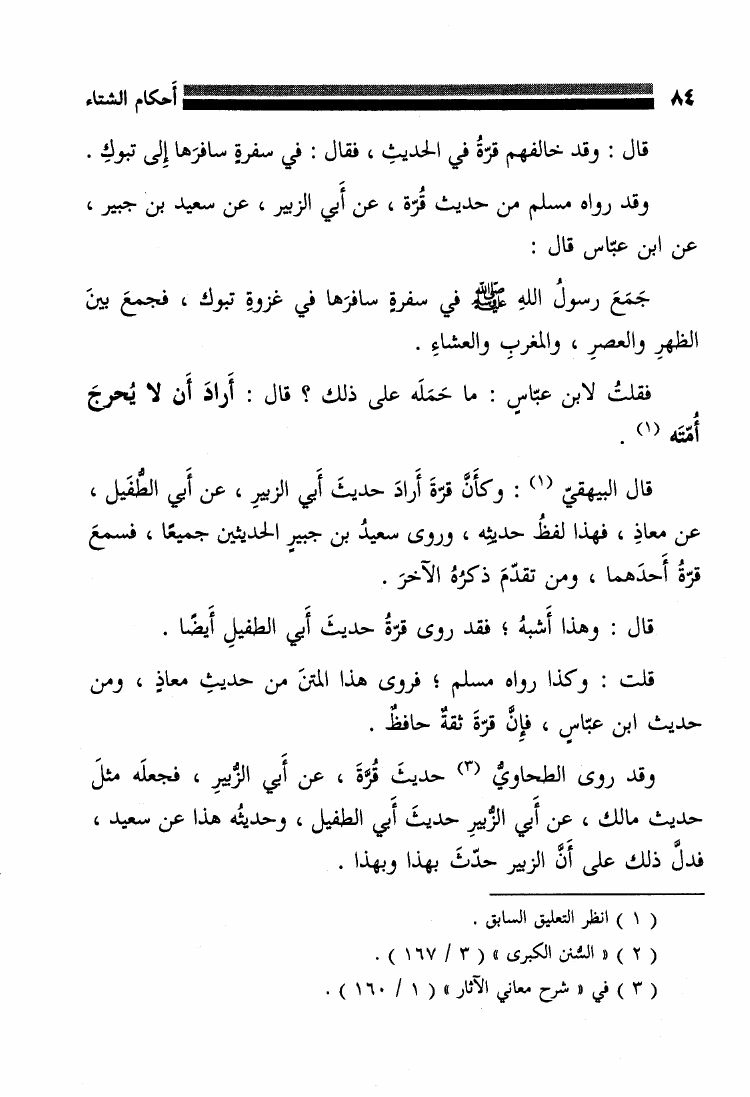 ٨٤ أَحكام الشتاء
قال : وقد خالفهم قرّةُ في الحديثِ ، فقال : في سفرةٍ سافرَها إِلى تبوكِ .
وقد رواه مسلم من حديث قُرّة ، عن أَبي الزبير ، عن سعيد بن جبير ،
عن ابن عبّاس قال :
جَمَعَ رسولُ اللهِ ﷺ في سفرةٍ سافرَها في غزوةِ تبوك ، فجمعَ بينَ
الظهرِ والعصرِ ، والمغربِ والعشاءِ .
فقلتُ لابن عبّاسٍ : ما حَمَلَه على ذلك ؟ قال : أَرادَ أَن لا يُحرجَ
أُمّتَه (١) .
قال البيهقيّ (١) : وكأَنَّ قرّةَ أَرادَ حديثَ أَبي الزبيرِ ، عن أَبي الطُّفَيل ،
عن معاذِ ، فهذا لفظُ حديثِه ، وروى سعيدُ بن جبيرٍ الحديثين جميعًا ، فسمعَ
قرّةُ أَحدَهما ، ومن تقدّمَ ذكرُهُ الآخرَ .
قال : وهذا أَشبهُ ؛ فقد روى قرّةُ حديثَ أَبي الطفيلِ أَيضًا .
قلت : وكذا رواه مسلم ؛ فروى هذا المتنَ من حديثِ معاذٍ ، ومن
حديث ابن عبّاسٍ ، فإِنَّ قرّةَ ثقةٌ حافظٌ .
وقد روى الطحاويُّ (٣) حديثَ قُرَّةَ ، عن أَبي الزُّبيرِ ، فجعلَه مثلَ
حديث مالك ، عن أَبي الزُّبيرِ حديثَ أَبي الطفيل ، وحديثُه هذا عن سعيد ،
فدلَّ ذلك على أَنَّ الزبير حدّثَ بهذا وبهذا .
( ١ ) انظر التعليق السابق .
( ٢ ) « السُّنن الكبرى » ( ٣ / ١٦٧ ) .
( ٣ ) في « شرح معاني الآثار » ( ١ / ١٦٠ ) .